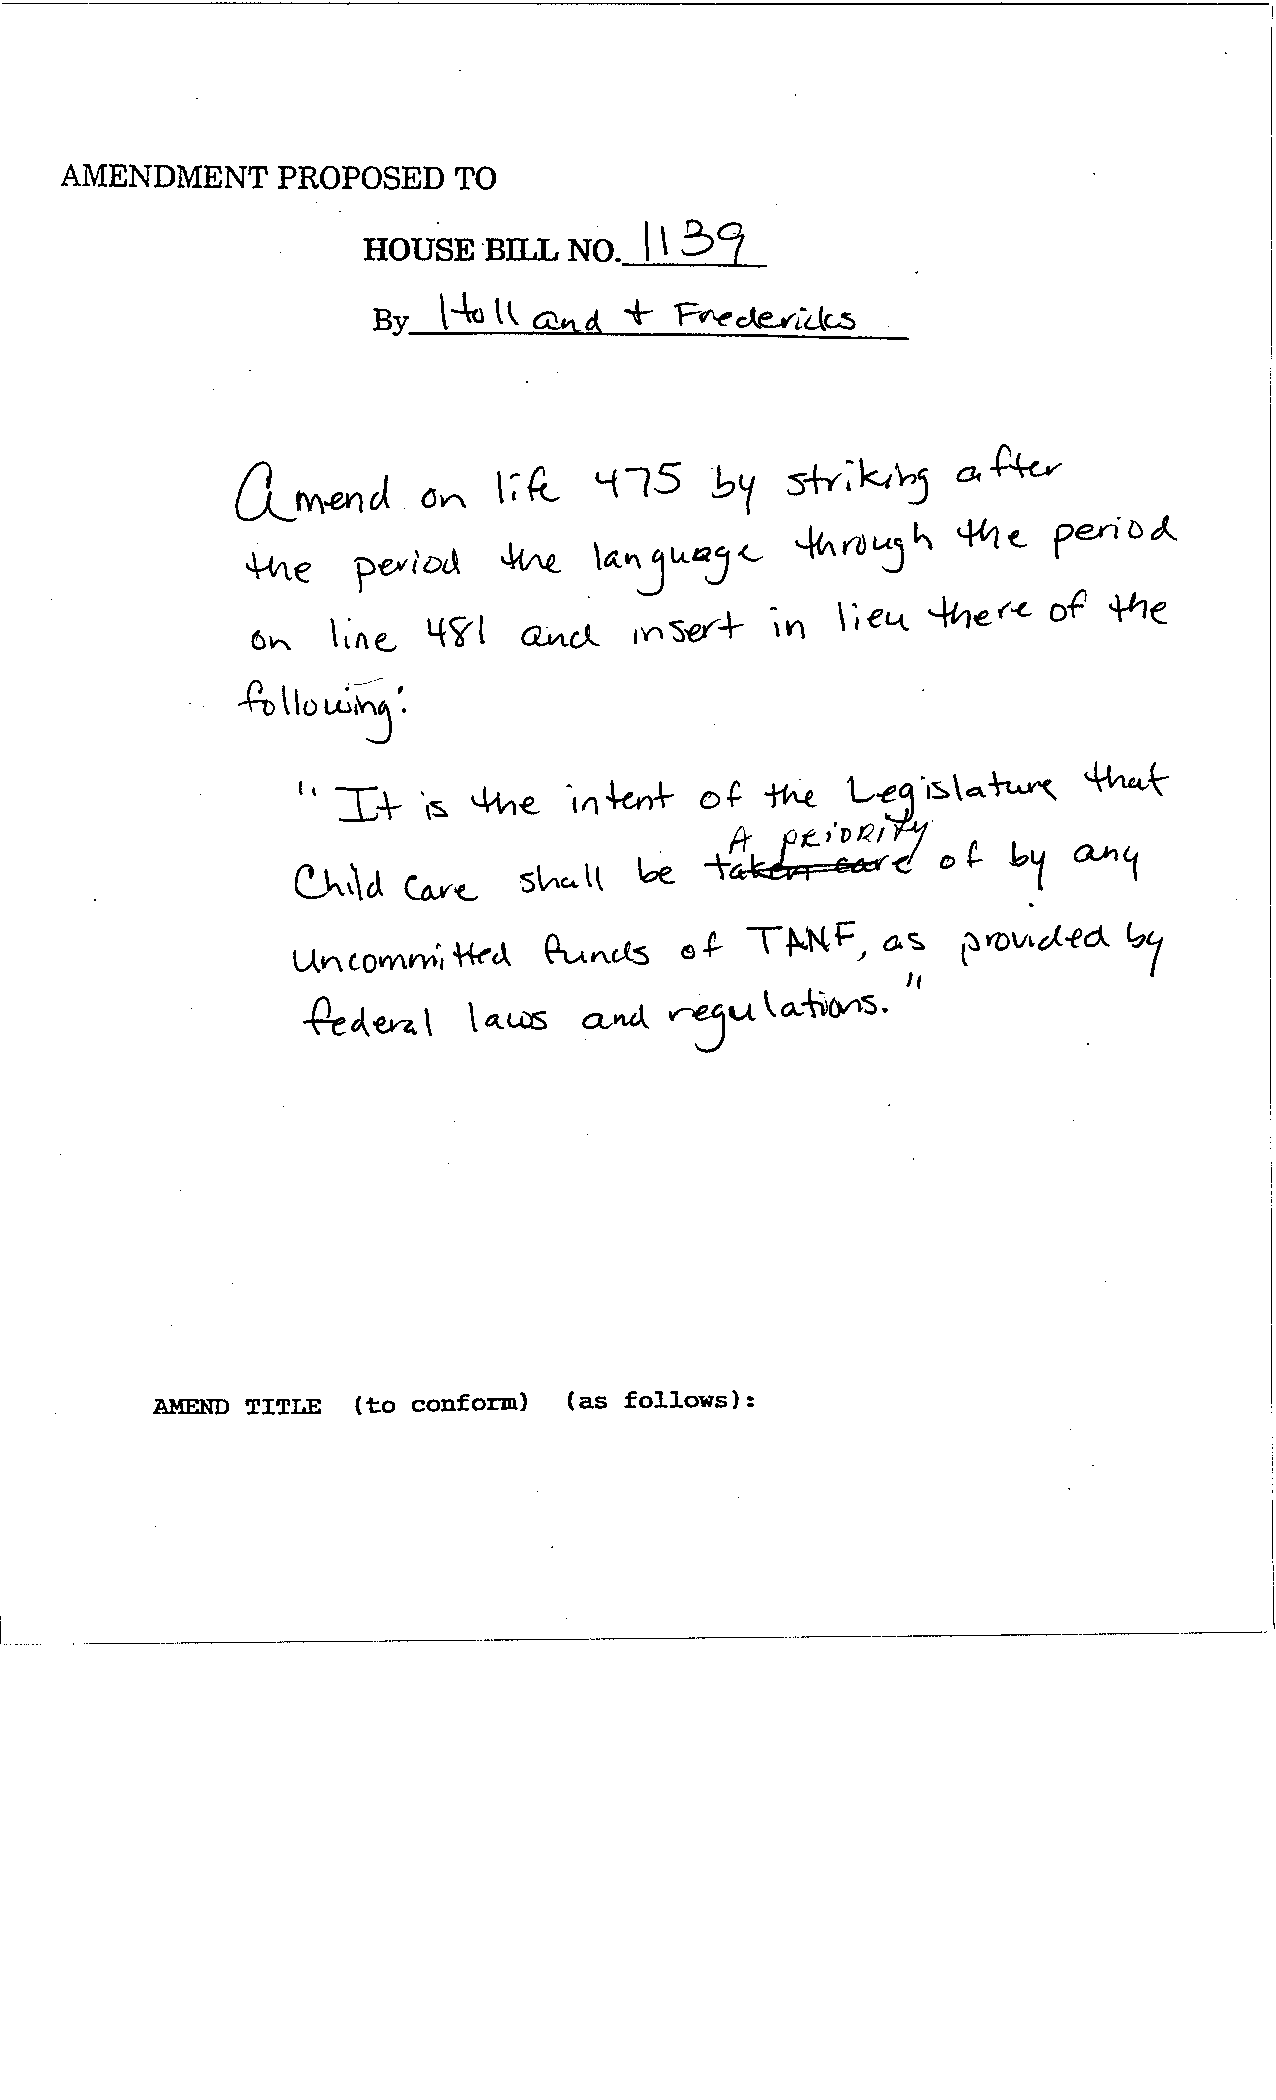 AMENDMENT PROPOSED TO
HOUSE BILL NO. 1139
By Holland + Fredericks
Amend on life 475 by striking after
the period the language through the period
on line 481 and insert in lieu there of the
following:
"It is the intent of the Legislature that
A PRIORITY
Child Care shall be taken care of by any
uncommitted funds of TANF, as provided by
federal laws and regulations."
AMEND TITLE (to conform) (as follows):